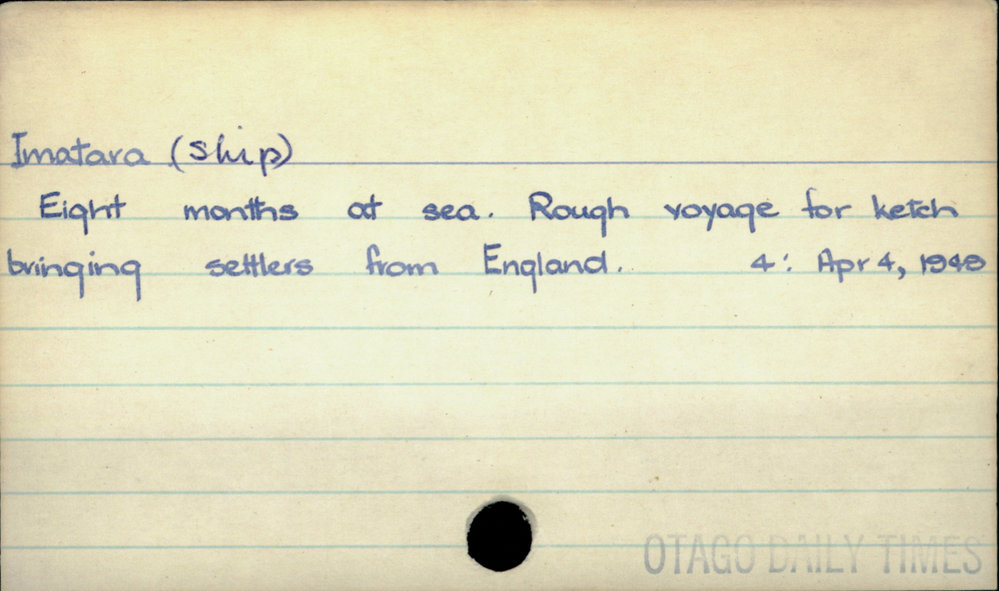 Imatara (ship)
Eight months at sea. Rough voyage for ketch
bringing settlers from England. 4: Apr 4, 1949
OTAGO DAILY TIMES